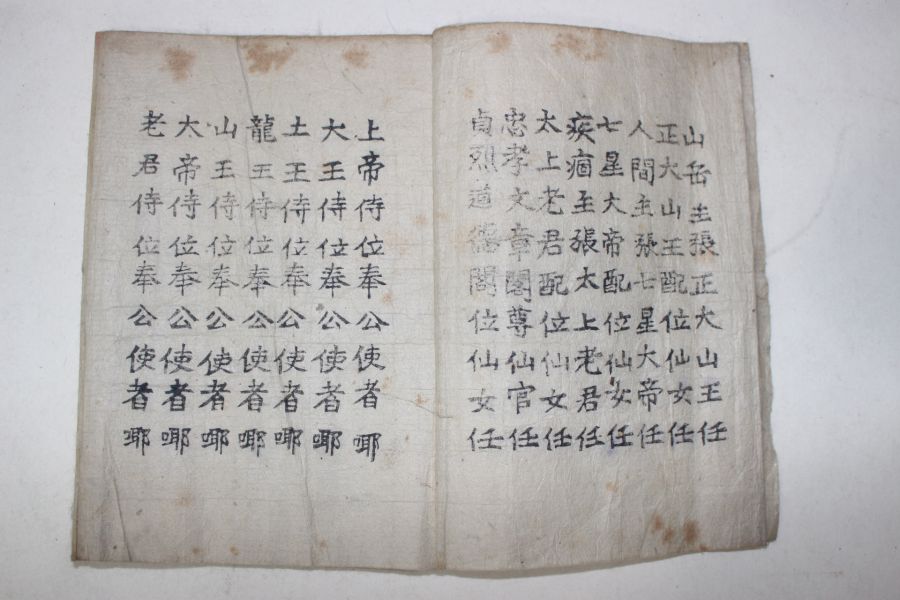 山岳主張正大山王任
正大山王配位仙女任
人間主張七星大帝任
七星大帝配位仙女任
疾痼主張太上老君任
太上老君配位仙女任
忠孝文章閣尊仙官任
貞烈道德閣位仙女任
上帝侍位奉公使者㖿
大王侍位奉公使者㖿
土王侍位奉公使者㖿
龍王侍位奉公使者㖿
山王侍位奉公使者㖿
大帝侍位奉公使者㖿
老君侍位奉公使者㖿